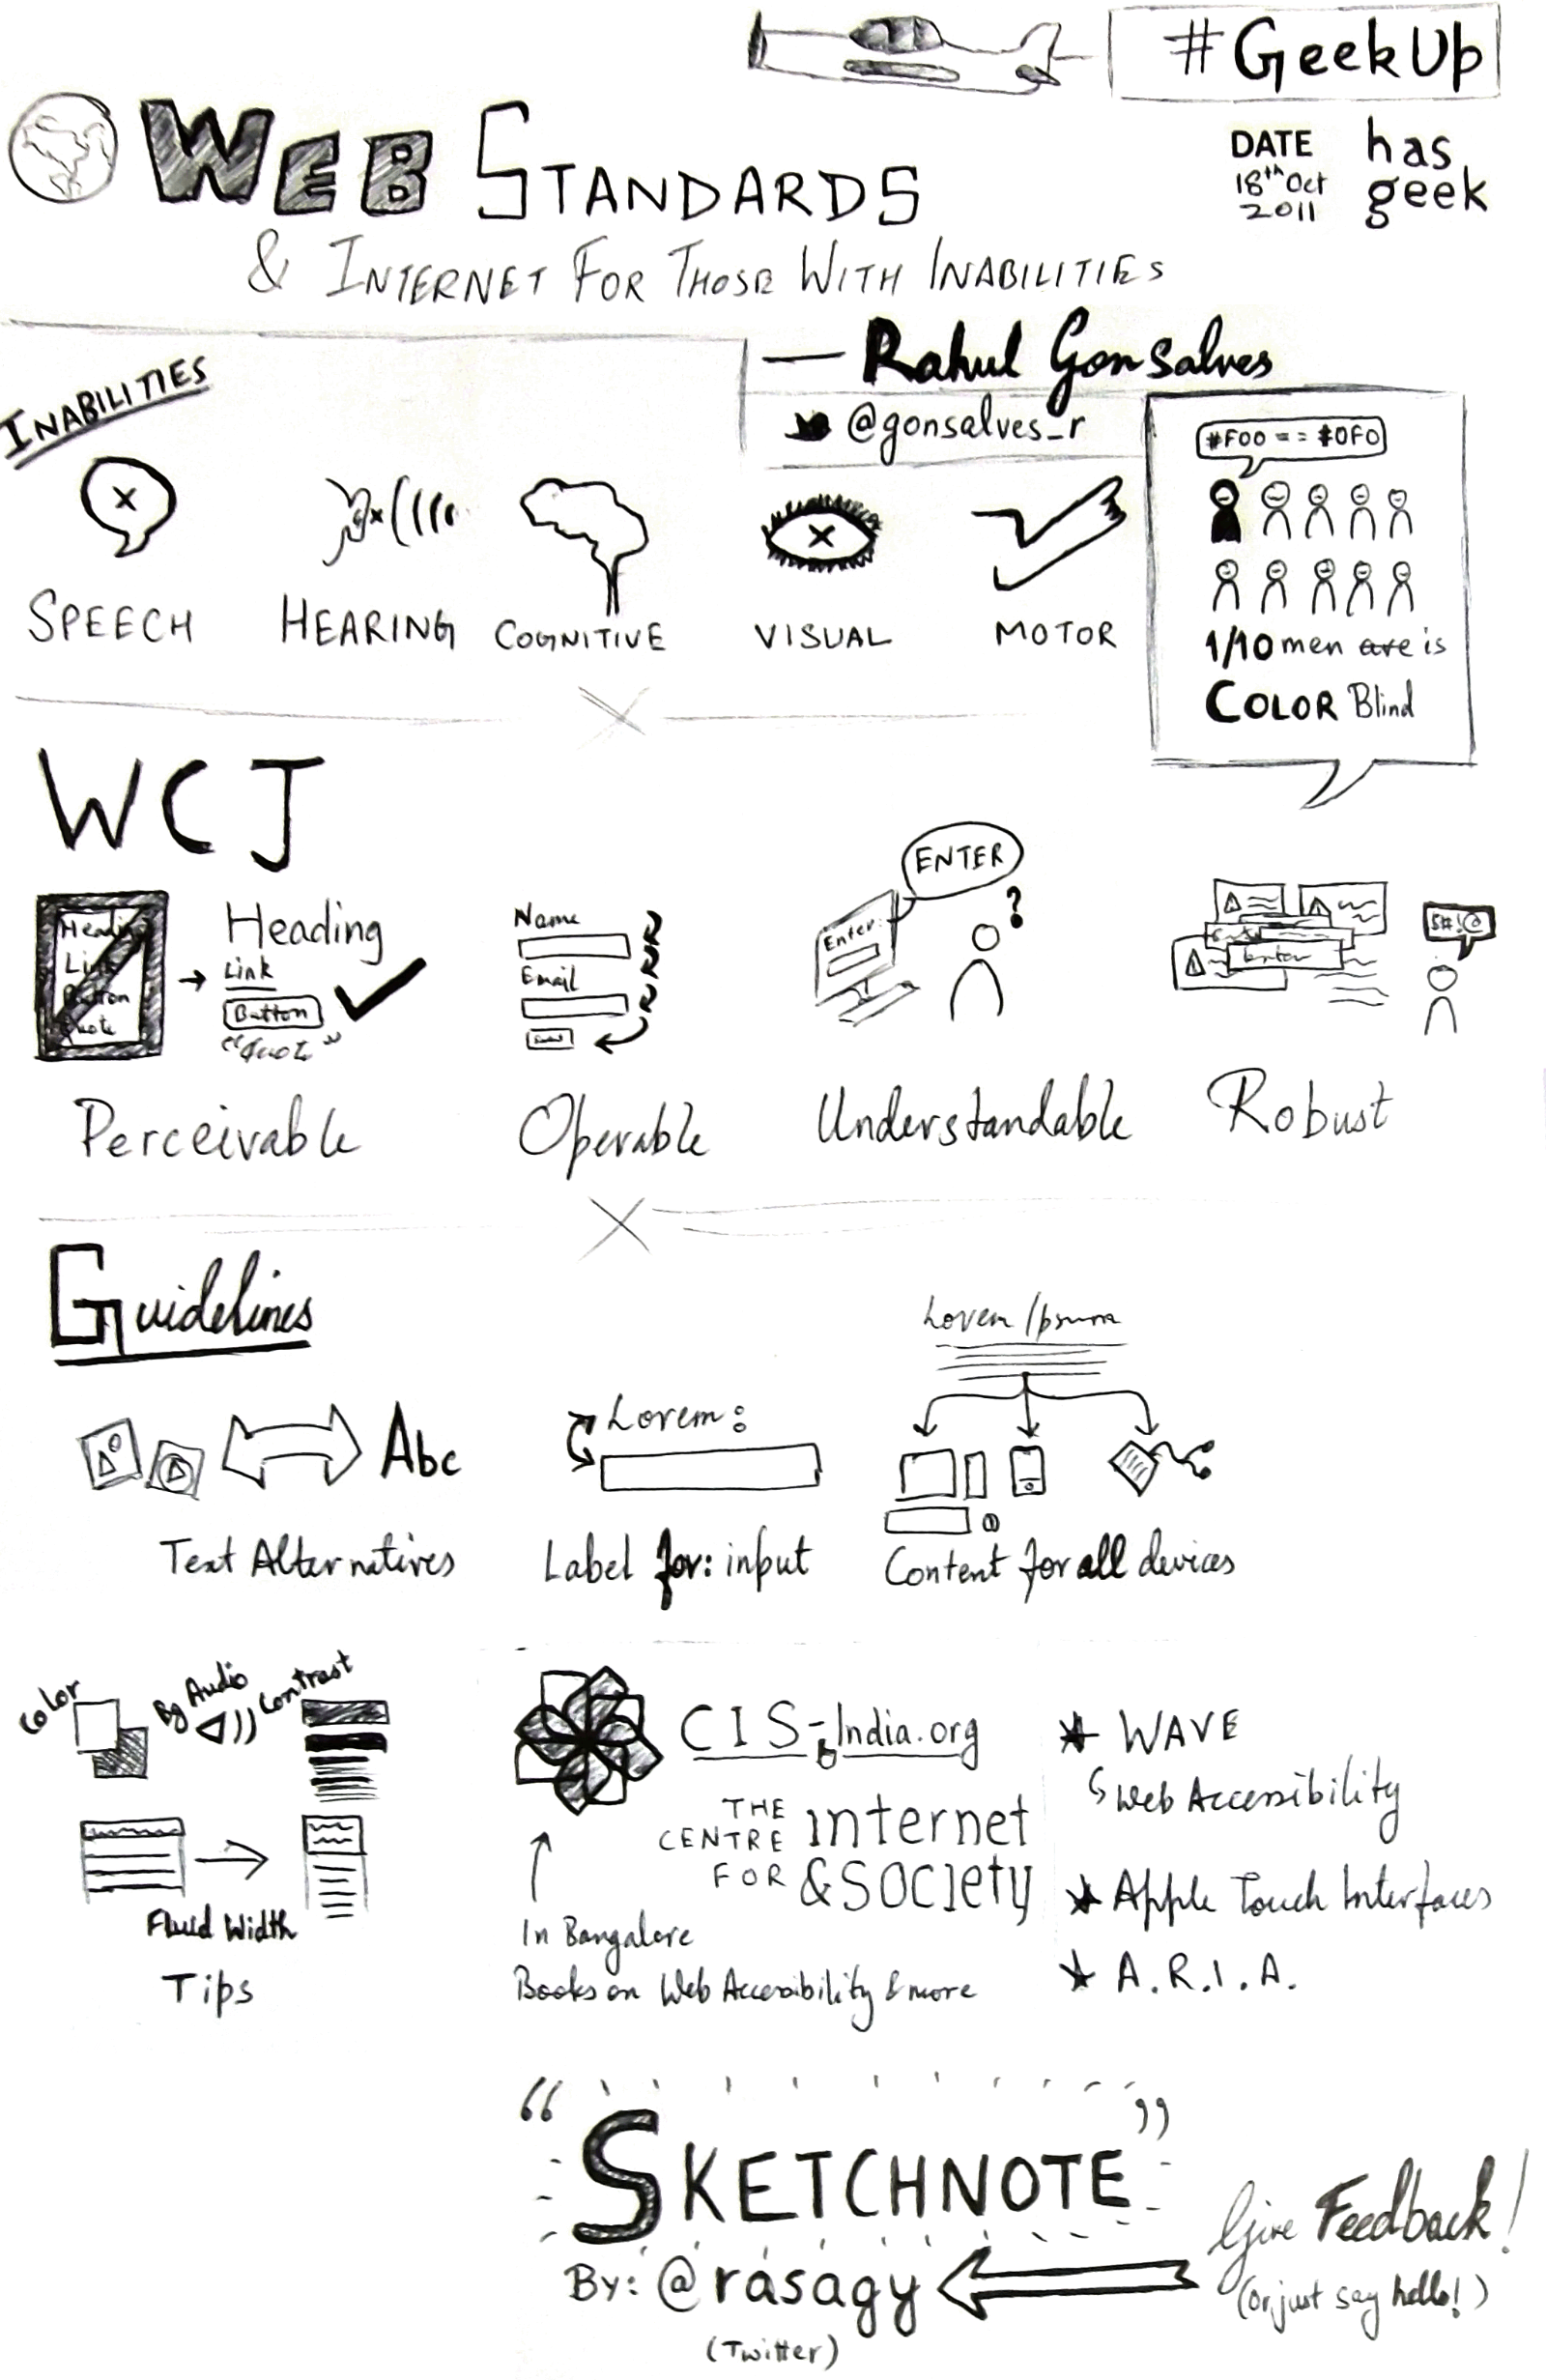 #GeekUp
DATE
18th Oct
2011
has
geek
WEB STANDARDS
& INTERNET FOR THOSE WITH INABILITIES
— Rahul Gonsalves
@gonsalves_r
INABILITIES
SPEECH
HEARING
COGNITIVE
VISUAL
MOTOR
#F00 == #0F0
1/10 men are is
COLOR Blind
WCJ
Heading
Link
Button
Quote
Heading
Link
Button
"Quote"
Perceivable
Name
Email
Operable
ENTER
?
Enter
Understandable
Enter
$#!@
Robust
Guidelines
Abc
Text Alternatives
Lorem:
Label for: input
Lorem Ipsum
Content for all devices
Color
Bg Audio
Contrast
Fluid Width
Tips
CIS-India.org
THE CENTRE FOR internet & SOCIETY
In Bangalore
Books on Web Accessibility & more
WAVE
Web Accessibility
Apple Touch Interfaces
A.R.I.A.
"SKETCHNOTE"
BY: @rasagy
(Twitter)
Give Feedback!
(Or just say hello!)